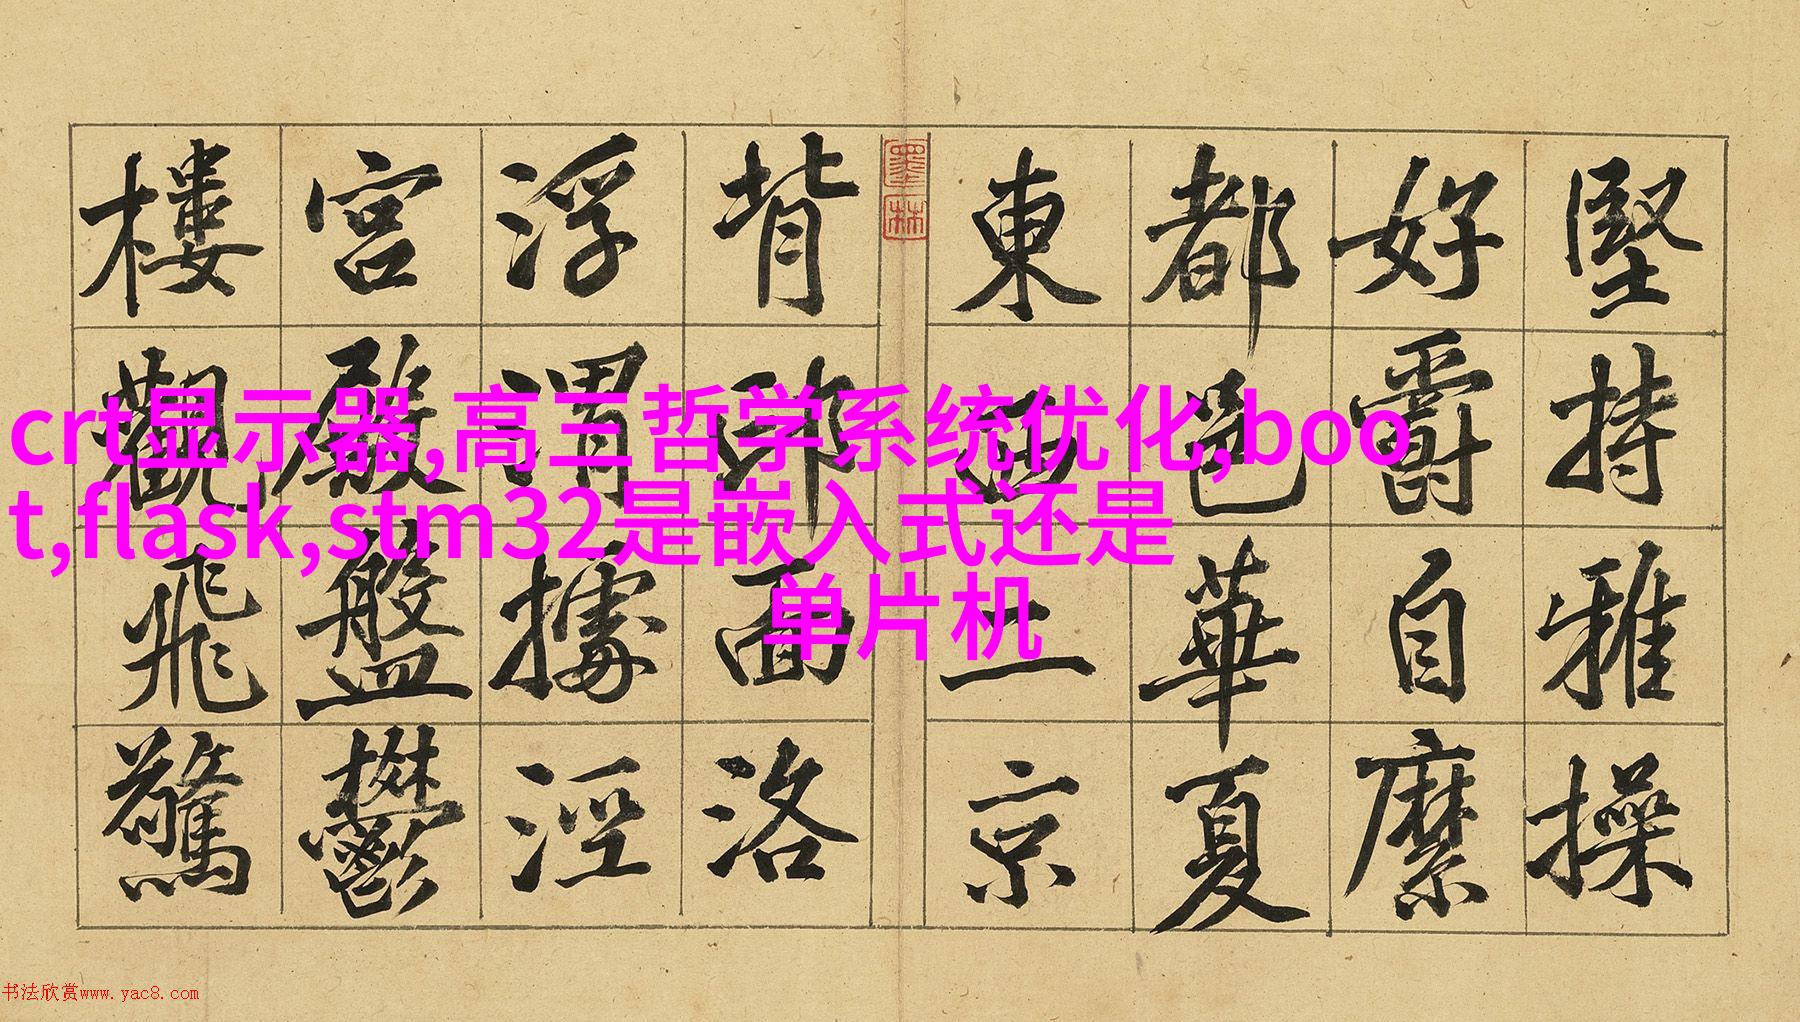 堅持雅操
好爵自縻
都邑華夏
東西二京
墨林
背邙面洛
浮渭據涇
宮殿盤鬱
樓觀飛驚
crt显示器,高三哲学系统优化,boo
t,flask,stm32是嵌入式还是
单片机
书法欣赏www.yac8.com